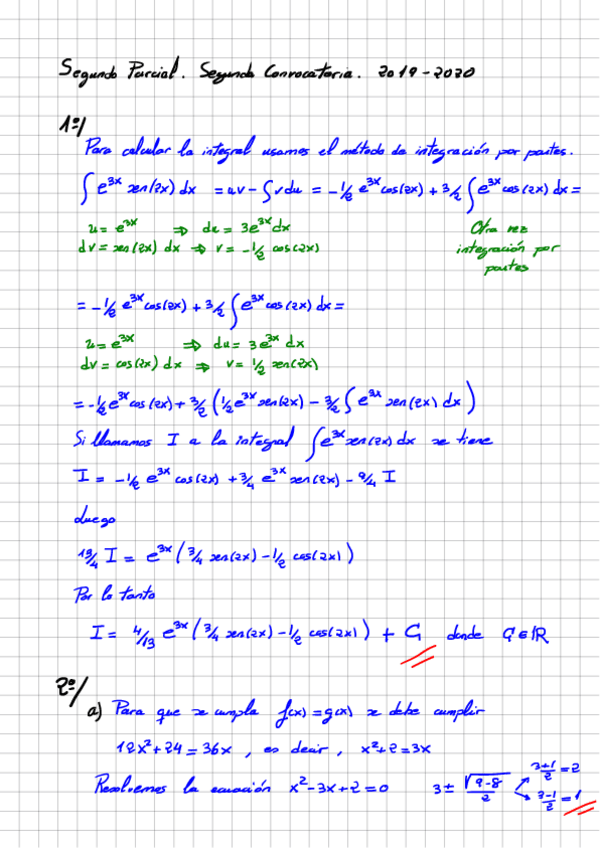 Segundo Parcial. Segunda Convocatoria. 2019-2020
1º/
Para calcular la integral usamos el método de integración por partes.
∫ e^{3x} sen(2x) dx = uv - ∫ v du = -1/2 e^{3x} cos(2x) + 3/2 ∫ e^{3x} cos(2x) dx =
u = e^{3x} ⇒ du = 3e^{3x} dx
dv = sen(2x) dx ⇒ v = -1/2 cos(2x)
Otra vez
integración por
partes
= -1/2 e^{3x} cos(2x) + 3/2 ∫ e^{3x} cos(2x) dx =
u = e^{3x} ⇒ du = 3e^{3x} dx
dv = cos(2x) dx ⇒ v = 1/2 sen(2x)
= -1/2 e^{3x} cos(2x) + 3/2 (1/2 e^{3x} sen(2x) - 3/2 ∫ e^{3x} sen(2x) dx)
Si llamamos I a la integral ∫ e^{3x} sen(2x) dx se tiene
I = -1/2 e^{3x} cos(2x) + 3/4 e^{3x} sen(2x) - 9/4 I
Luego
13/4 I = e^{3x} (3/4 sen(2x) - 1/2 cos(2x))
Por lo tanto
I = 4/13 e^{3x} (3/4 sen(2x) - 1/2 cos(2x)) + C donde C ∈ ℝ
2º/
a) Para que se cumpla f(x) = g(x) se debe cumplir
12x² + 24 = 36x, es decir, x² + 2 = 3x
Resolvemos la ecuación x² - 3x + 2 = 0 3 ± √(9-8)/2 (3+1)/2 = 2
(3-1)/2 = 1